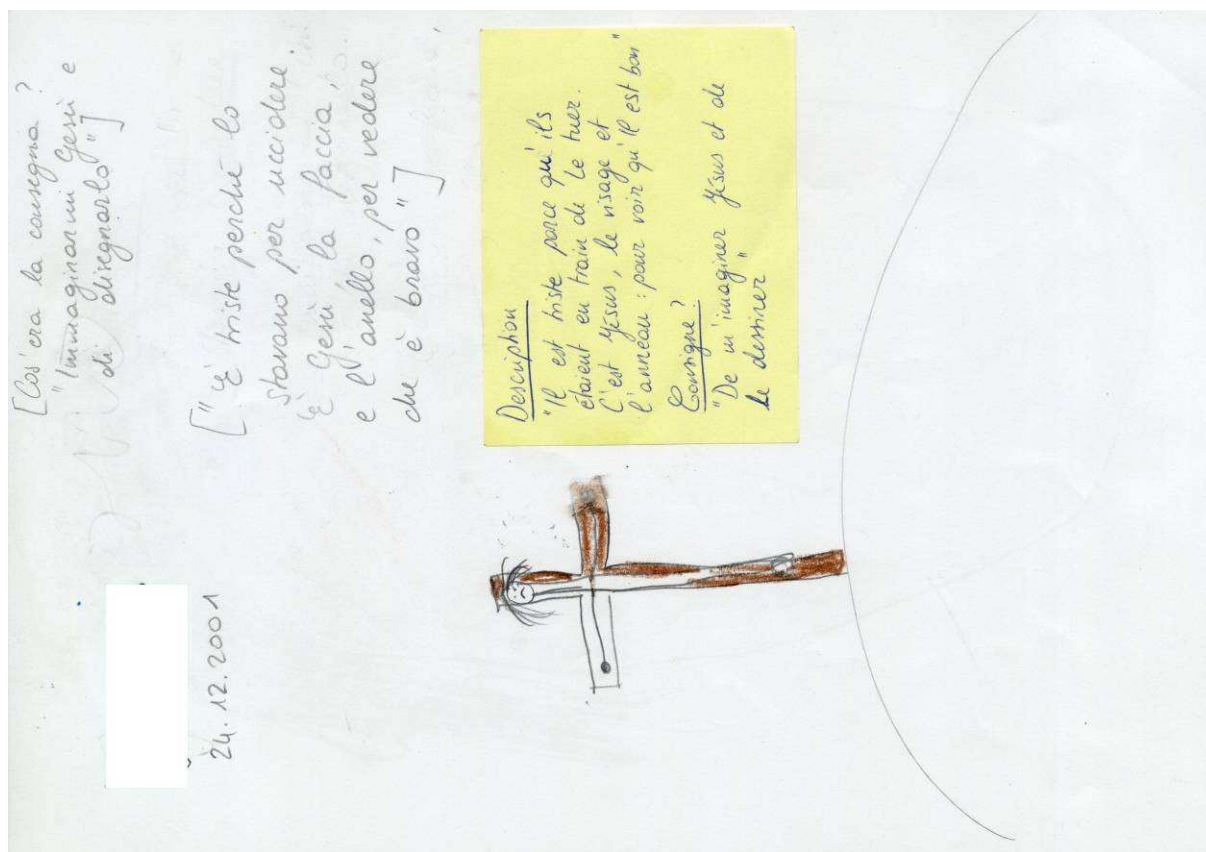 [Cos'era la consegna?
"Immaginarmi Gesù e
di disegnarlo"]
["è triste perché lo
stavano per uccidere.
È Gesù, la faccia,
e l'anello, per vedere
che è bravo"]
24.12.2001
Description
"Il est triste parce qu'ils
étaient en train de le tuer.
C'est Jésus, le visage et
l'anneau : pour voir qu'il est bon"
Consigne?
"De m'imaginer Jésus et de
le dessiner"